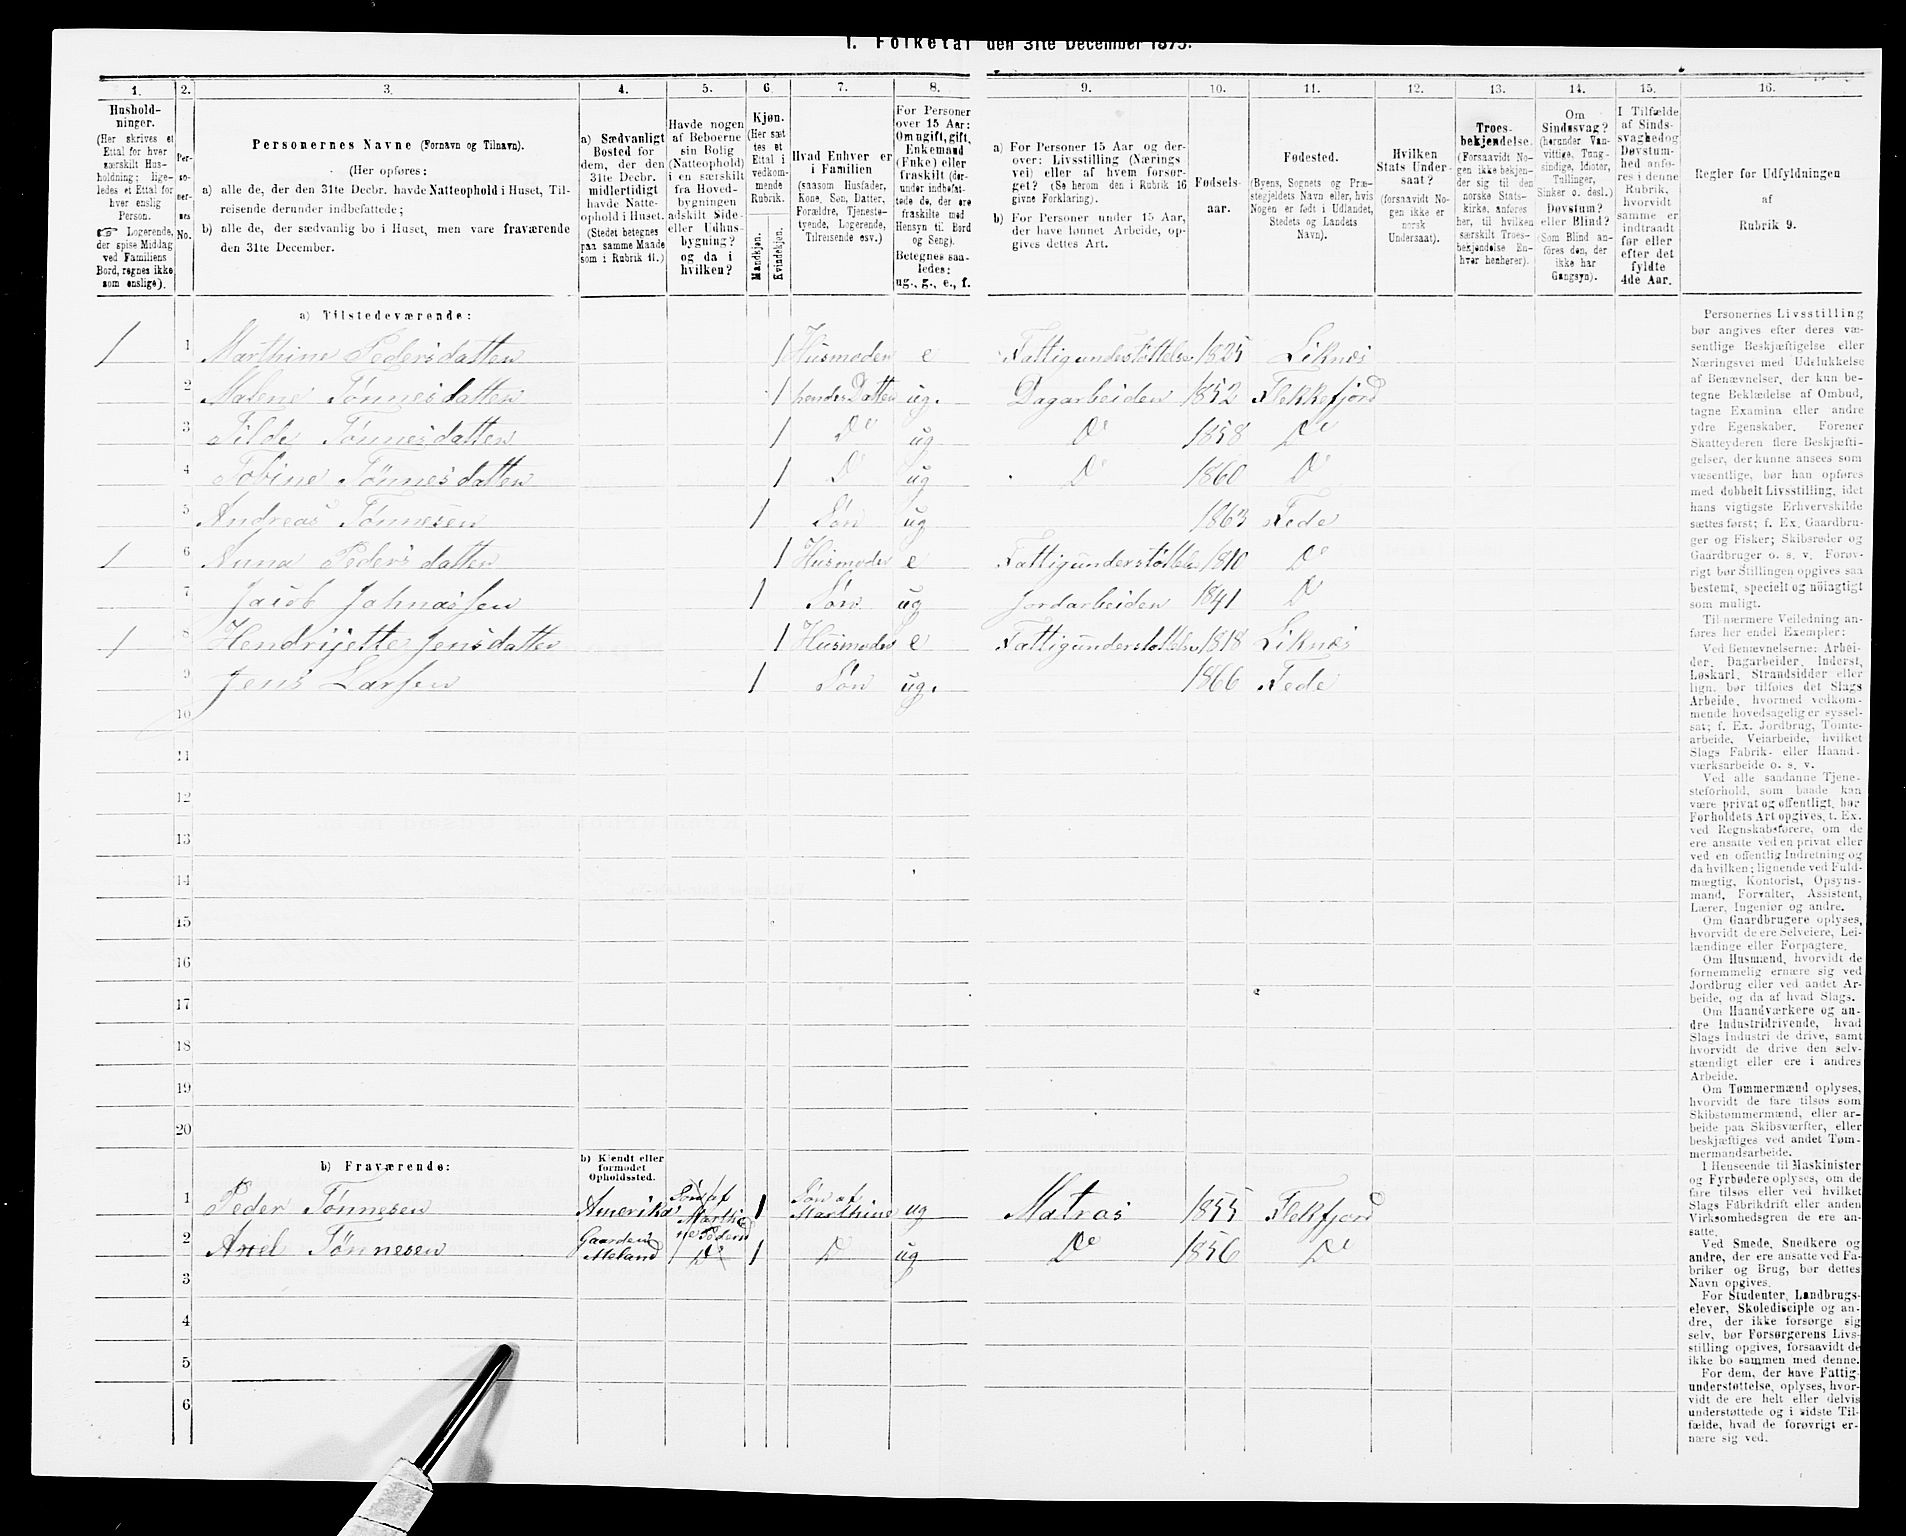 I. Folketal den 31te December 1875.
1. 2. 3. 4. 5. 6. 7. 8. 9. 10. 11. 12. 13. 14. 15. 16.
Hushold-
ninger.
(Her skrives et
Ettal for hver
særskilt Hus-
holdning; lige-
ledes et Ettal for
hver enslig
Person.
☞ Logerende,
der spise Middag
ved Familiens
Bord, regnes ikke
som enslige).
Per-
soner-
nes
No.
Personernes Navne (Fornavn og Tilnavn).
(Her opføres:
a) alle de, der den 31te Decbr. havde Natteophold i Huset, Til-
reisende derunder indbefattede;
b) alle de, der sædvanlig bo i Huset, men vare fraværende
den 31te December.
a) Sædvanligt
Bosted for
dem, der den
31te Decbr.
midlertidigt
havde Natte-
ophold i Huset.
(Stedet betegnes
paa samme Maade
som i Rubrik 11.)
Havde nogen
af Beboerne
sin Bolig
(Natteophold)
i en særskilt
fra Hoved-
bygningen
adskilt Side-
eller Udhus-
bygning?
og da i
hvilken?
Kjøn.
(Her sæt-
tes et
Ettal i
vedkom-
mende
Rubrik.
Mandkjøn.
Kvindekjøn.
Hvad Enhver er
i Familien
(saasom Husfader,
Kone, Søn, Datter,
Forældre, Tjeneste-
tyende, Logerende,
Tilreisende osv.)
For Personer
over 15 Aar:
Om ugift, gift,
Enkemand
(Enke) eller
fraskilt (der-
under indbefat-
tede de, der ere
fraskilte med
Hensyn til Bord
og Seng).
Betegnes saa-
ledes:
ug., g., e., f.
a) For Personer 15 Aar og der-
over: Livsstilling (Nærings-
vei) eller af hvem forsør-
get? (Se herom den i Rubrik 16
givne Forklaring).
b) For Personer under 15 Aar,
der have lønnet Arbeide, op-
gives dettes Art.
Fødsels-
aar.
Fødested.
(Byens, Sognets og Præ-
stegjeldets Navn eller, hvis
Nogen er født i Udlandet,
Stedets og Landets
Navn).
Hvilken
Stats Under-
saat?
(forsaavidt No-
gen ikke er
norsk
Undersaat).
Troes-
bekjendelse.
(Forsaavidt No-
gen ikke bekjen-
der sig til den
norske Stats-
kirke, anføres
her, til hvilken
særskilt Troes-
bekjendelse En-
hver henhører).
Om
Sindssvag?
(herunder Van-
vittige, Tung-
sindige, Idioter,
Tullinger,
Sinker o. desl.)
Døvstum?
eller Blind?
(Som Blind an-
føres den, der
ikke har
Gangsyn).
I Tilfælde
af Sinds-
svaghed og
Døvstum-
hed anfø-
res i denne
Rubrik,
hvorvidt
samme er
indtraadt
før eller
efter det
fyldte
4de Aar.
Regler for Udfyldningen
af
Rubrik 9.
a) Tilstedeværende:
1 1 Marthine Pedersdatter 1 Husmoder e Fattigunderstøttelse 1825 Liknes
2 Malene Tønnesdatter 1 hendes Datter ug. Dagarbeider 1852 Flekkefjord
3 Tilde Tønnesdatter 1 Do ug Do 1858 Do
4 Tobine Tønnesdatter 1 D ug Do 1860 Do
5 Andreas Tønnesen 1 Søn ug 1863 Fede
1 6 Anna Pedersdatter 1 Husmoder e Fattigunderstøttelse 1810 Do
7 Jacob Johnassen 1 Søn ug Jordarbeider 1841 D
1 8 Hendrijette Jensdatter 1 Husmoder e Fattigunderstøttelse 1818 Liknes
9 Jens Larsen 1 Søn ug. 1866 Fede
10
11
12
13
14
15
16
17
18
19
20
b) Fraværende:
b) Kjendt eller
formodet
Opholdssted.
1 Peder Tønnesen Amerika Søn af Marthine Peders 1 Søn af Marthine ug Matros 1855 Flekfjord
2 Axel Tønnesen Gaarden Meland Do 1 D ug Do 1856 Do
3
4
5
6
Personernes Livsstilling
bør angives efter deres væ-
sentlige Beskjæftigelse eller
Næringsvei med Udelukkelse
af Benævnelser, der kun be-
tegne Beklædelse af Ombud,
tagne Examina eller andre
ydre Egenskaber. Forener
Skatteyderen flere Beskjæfti-
gelser, der kunne ansees som
væsentlige, bør han opføres
med dobbelt Livsstilling, idet
hans vigtigste Erhvervskilde
sættes først; f. Ex. Gaardbru-
ger og Fisker; Skibsreder og
Gaardbruger o. s. v. Forøv-
rigt bør Stillingen opgives saa
bestemt, specielt og nøiagtigt
som muligt.
Til nærmere Veiledning an-
føres her endel Exempler:
Ved Benævnelserne: Arbei-
der, Dagarbeider, Inderst,
Løskarl, Strandsidder eller
lign. bør tilføies det Slags
Arbeide, hvormed vedkom-
mende hovedsagelig er syssel-
sat; f. Ex. Jordbrug, Tomte-
arbeide, Veiarbeide, hvilket
Slags Fabrik- eller Haand-
værksarbeide o. s. v.
Ved alle saadanne Tjene-
steforhold, som baade kan
være privat og offentligt, bør
Forholdets Art opgives, f. Ex.
ved Regnskabsførere, om de
ere ansatte ved en privat eller
ved en offentlig Indretning og
da hvilken; lignende ved Fuld-
mægtig, Kontorist, Opsyns-
mand, Forvalter, Assistent,
Lærer, Ingeniør og andre.
Om Gaardbrugere oplyses,
hvorvidt de ere Selveiere, Lei-
lændinge eller Forpagtere.
Om Husmænd, hvorvidt de
fornemmelig ernære sig ved
Jordbrug eller ved andet Ar-
beide, og da af hvad Slags.
Om Haandværkere og an-
dre Industridrivende, hvad
Slags Industri de drive, samt
hvorvidt de drive den selv-
stændigt eller ere i andres
Arbeide.
Om Tømmermænd oplyses,
hvorvidt de fare tilsøs som
Skibstømmermænd, eller ar-
beide paa Skibsværfter, eller
beskjæftiges ved andet Tøm-
mermandsarbeide.
I Henseende til Maskinister
og Fyrbødere oplyses, om de
fare tilsøs eller ved hvilket
Slags Fabrikdrift eller anden
Virksomhedsgren de ere an-
satte.
Ved Smede, Snedkere og
andre, der ere ansatte ved Fa-
briker og Brug, bør dettes
Navn opgives.
For Studenter, Landbrugs-
elever, Skoledisciple og an-
dre, der ikke forsørge sig
selv, bør Forsørgerens Livs-
stilling opgives, forsaavidt de
ikke bo sammen med denne.
For dem, der have Fattig-
understøttelse, oplyses, hvor-
vidt de ere helt eller delvis
understøttede og i sidste Til-
fælde, hvad de forøvrigt er-
nære sig ved.